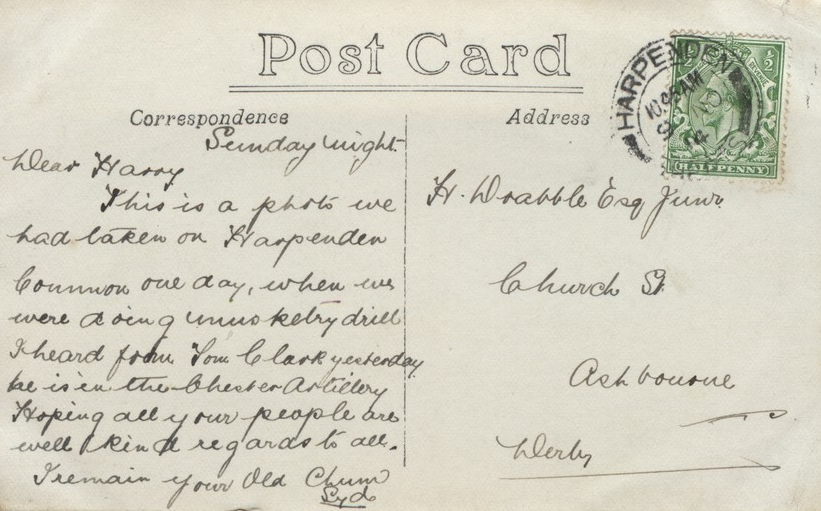 Post Card
Correspondence
Address
Sunday night.
Dear Harry
This is a photo we
had taken on Harpenden
Common one day, when we
were doing musketry drill
I heard from Tom Clark yesterday
he is in the Chester Artillery
Hoping all your people are
well kind regards to all.
I remain your Old Chum
Syd
H. Wrabble Esq Junr.
Church St
Ashbourne
Derby
HARPENDEN
10.45 AM
NO
14
½ ½
HALFPENNY